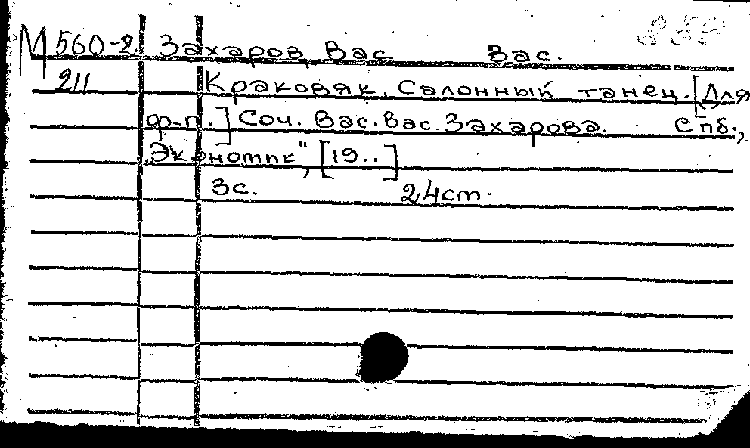 М 560-2 Захаров, Вас. Вас.
211 Краковяк. Салонный танец. [Для
ф-п.] Соч. Вас. Вас. Захарова. Спб.,
"Экономик", [19..]
3с. 24ст.